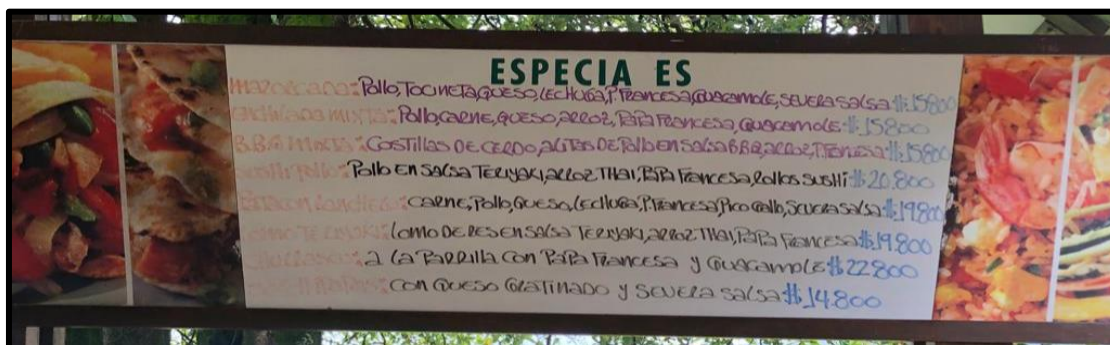 ESPECIA ES
mazorcada: Pollo, TOCINETA, QUESO, LECHUGA, P. FRANCESA, GUACAMOLE, SEVERA SALSA $15800
ENCHILADA MIXTA: Pollo, CARNE, QUESO, ARROZ, PAPA FRANCESA, GUACAMOLE $15800
B.B.Q MIXTA: COSTILLAS DE CERDO, ALITAS DE POLLO EN SALSA BBQ, ARROZ, P. FRANCESA $15800
SUSHI POLLO: POLLO EN SALSA TERIYAKI, ARROZ THAI, PAPA FRANCESA, ROLLOS SUSHI $20.800
PATACON RANCHERO: CARNE, POLLO, QUESO, LECHUGA, P. FRANCESA, PICO GALLO, SEVERA SALSA $19.800
LOMO TERIYAKI: LOMO DE RES EN SALSA TERIYAKI, ARROZ THAI, PAPA FRANCESA $19.800
CHURRASCO: A LA PARRILLA CON PAPA FRANCESA Y GUACAMOLE $22800
CON QUESO GRATINADO Y SEVERA SALSA $14.800